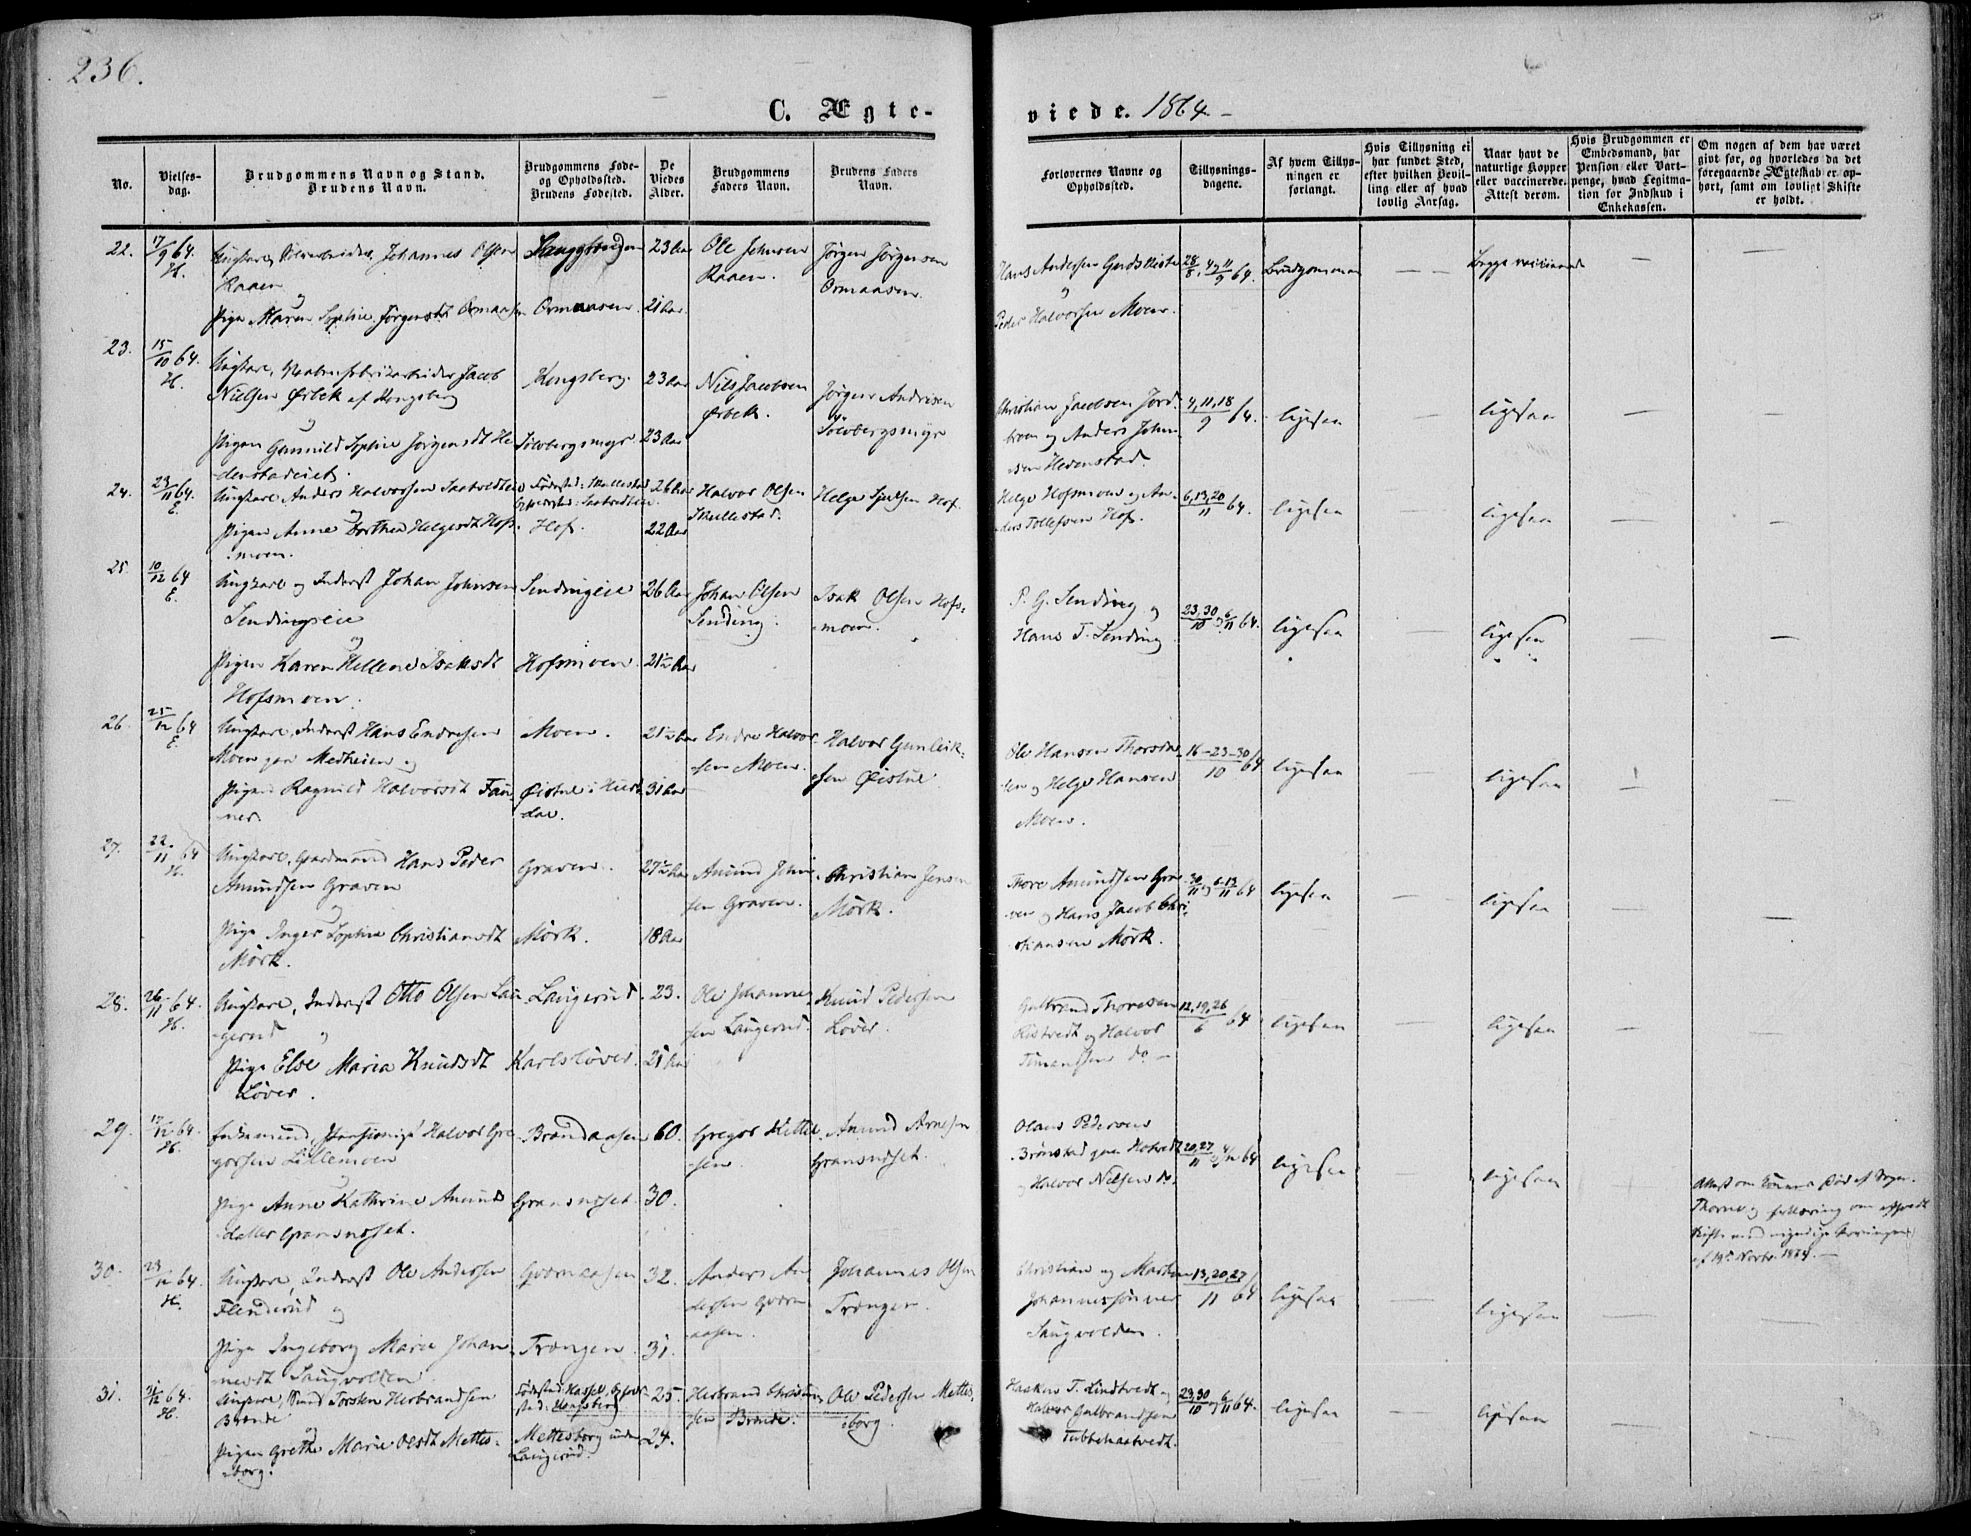 236.
C. Ægte-
viede. 1864.
No.
Vielses-
dag.
Brudgommens Navn og Stand.
Brudens Navn.
Brudgommens Føde-
og Opholdssted.
Brudens Fødested.
De
Viedes
Alder.
Brudgommens
Faders Navn.
Brudens Faders
Navn.
Forlovernes Navne og
Opholdssted.
Tillysnings-
dagene.
Af hvem Tillys-
ningen er
forlangt.
Hvis Tillysning ei
har fundet Sted,
efter hvilken Bevil-
ling eller af hvad
lovlig Aarsag.
Naar havt de
naturlige Kopper
eller vaccinerede.
Attest derom.
Hvis Brudgommen er
Embedsmand, har
Pension eller Vart-
penge, hvad Legitima-
tion for Indskud i
Enkekassen.
Om nogen af dem har været
givt før, og hvorledes da det
foregaaende Ægteskab er op-
hørt, samt om lovligt Skifte
er holdt.
22. 17/9 64. H.
Ungkarl, Johannes Olsen
Raaen
og
Pige Maren Sophie Jørgensdt Ormaasen
Ormaasen
23 Aar
21 Aar
Ole Johnsen
Raaen.
Jørgen Jørgensen
Ormaasen
Hans Andersen
og
Peder Halvorsen Moen.
28/8, 4 og 11/9 64.
Brudgommen
Begge vaccinerede
23. 15/10 64. H.
Ungkarl, Jacob
Nielsen Ørbek af Kongsberg
og
Pigen Gunnild Sophie Jørgensdt He-
denstadeiet.
Kongsberg
Solobergsmyr
23 Aar
23 Aar
Nils Jacobsen
Ørbek.
Jørgen Andersen
Solobergsmyr
Christian Jacobsen Jord-
broen og Anders John-
sen Hedenstad.
4, 11, 18/9 64.
ligesaa
ligesaa
24. 23/11 64. E.
Ungkarl Anders Halvorsen
og
Pigen Anne Dorthea Helgesdt Hofs-
moen.
Fødested: Skullestad
Hof.
26 Aar
22 Aar
Halvor Olsen
Skullestad.
Helge Hof
Helge Hofsmoen og An-
ders Tollefsen Hof.
6, 13, 20/11 64.
ligesaa
ligesaa
25. 10/12 64 E.
Ungkarl og Inderst Johan Johnsen
Sendingeie
og
Pigen Karen Hellene Isaksdt
Hofsmoen.
Sendingeie
Hofsmoen.
26 Aar
21½ Aar
Johan Olsen
Sending.
Isak Olsen Hofs-
moen.
P. G. Sending og
Hans T. Sending
23, 30/10 og 6/11 64.
ligesaa
ligesaa
26. 25/12 64 E.
Ungkarl, Inderst Hans Endresen
Moen paa Medheien og
Pigen Ragnild Halvorsdt Fan-
nes.
Moen.
Øistul i Hiert-
dal.
21½ Aar
31 Aar
Endre Halvor-
sen Moen.
Halvor Gunleik-
sen Øistul
Ole Hansen
og Helge Hansen
Moen.
16-23-30/10 64
ligesaa
ligesaa
27. 22/11 64 H.
Ungkarl, Gaardmand Hans Peder
Amundsen Graven
og
Pige Inger Sophie Christiansdt
Mørk.
Graven.
Mørk.
27½ Aar
18 Aar
Amund John-
sen Graven.
Christian Jensen
Mørk.
Thore Amundsen Gra-
ven og Hans Jacob Chri-
stiansen Mørk.
30/11 og 6-13/11 64
ligesaa
ligesaa
28. 26/11 64. H.
Ungkarl, Inderst Otto Olsen Lau-
gerud og
Pige Else Maria Knudsdt
Løver.
Laugerud
Karlsløver.
23.
21 Aar
Ole Johanne-
sen Laugerud.
Knud Pedersen
Løver.
Gulbrand Thoresen
Kistvedt og Halvor
Timansen do
12, 19, 26/6 64
ligesaa
ligesaa
29. 17/12 64. H.
Enkemand, Pensionist Halvor Gre-
gorsen Lillemoen
og
Pige Anne Kathrine Amunds-
datter Gransnøset.
Brandaasen
Gransnøset
60.
30.
Gregor Kittel-
sen.
Amund Arnesen
Gransnøset.
Olaus Pedersen
Brønstad paa
og Halvor Nielsen do.
20, 27/11 og 4/12 64
ligesaa
ligesaa
Attest om Konens Død af
og Erklæring om afholdt
Skifte med myndige Arvinger
af 19de Novbr 1864.
30. 23/12 64. H.
Ungkarl, Inderst Ole Andersen
Flenderud og
Pige Ingeborg Marie Johan-
nesdt Saugvolden
Gvornaasen
Trangen.
32.
31.
Anders An-
dersen Gvorn-
aasen.
Johannes Olsen
Trangen.
Christian og Martin
Johannessønner
Saugvolden.
13, 20, 27/11 64
ligesaa
ligesaa
31. 31/12 64. H.
Ungkarl, Smed Torsten Herbrandsen
Brænde
og
Pigen Grethe Marie Olsdt Mettes-
borg.
Fødested: Hassel, Ophold-
sted: Kongsberg
Mettesborg under
Laugerud.
25.
24.
Herbrand Christian-
sen Brænde.
Ole Pedersen Mettes-
borg.
Haaken T. Lindtvedt og
Halvor Gulbrandsen
Tubbehaatvedt.
23, 30/10 og 6/11 64.
ligesaa
ligesaa